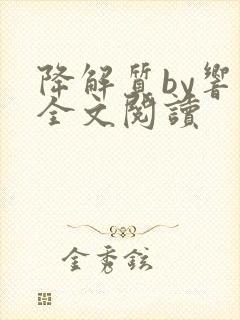 降解质by響
全文閱讀
金秀鉉